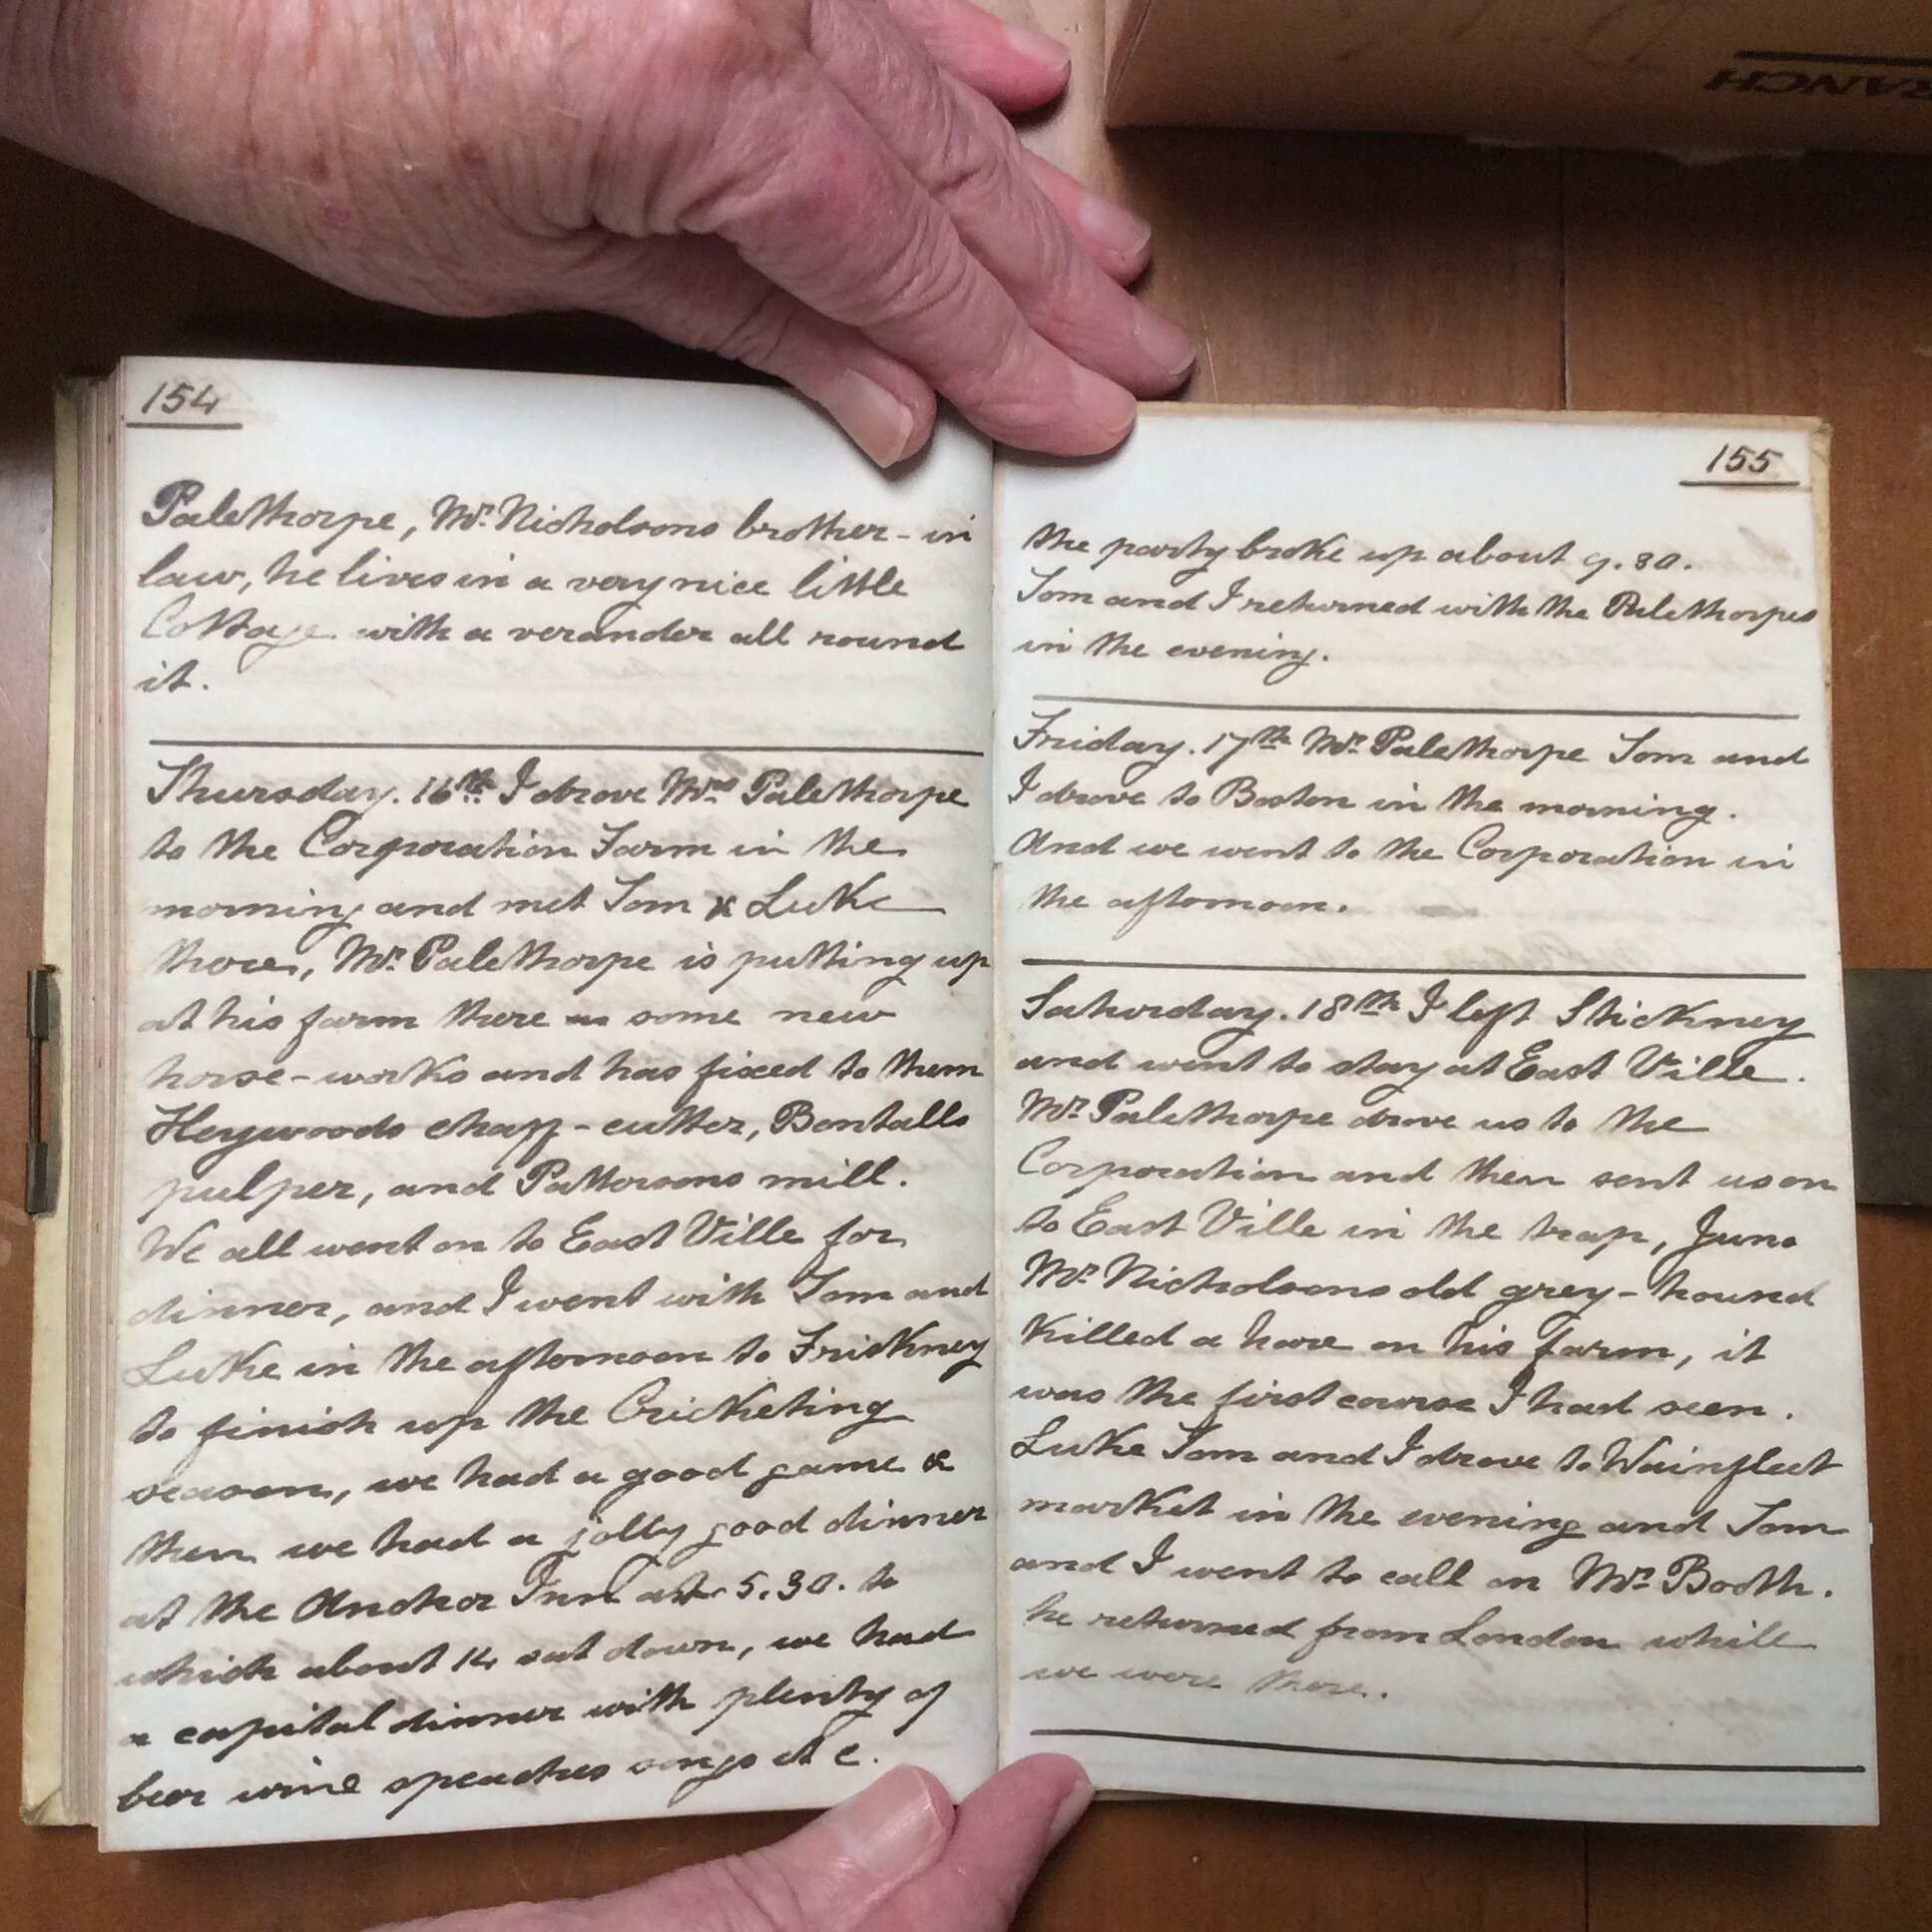 RANCH
154
Palethorpe, Mr. Nicholsons brother-in
law, he lives in a very nice little
Cottage with a verander all round
it.
Thursday. 16th. I drove Mrs Palethorpe
to the Corporation Farm in the
morning and met Tom & Luke
there, Mr. Palethorpe is putting up
at his farm there some new
horse-works and has fixed to them
Heywoods chaff-cutter, Bentalls
pulper, and Pattersons mill.
We all went on to East Ville for
dinner, and I went with Tom and
Luke in the afternoon to Friskney
to finish up the Cricketing
season, we had a good game &
then we had a jolly good dinner
at the Anchor Inn at 5.30. to
which about 14 sat down, we had
a capital dinner with plenty of
beer wine speaches songs et c.
155
the party broke up about 9.30.
Tom and I returned with the Palethorpes
in the evening.
Friday. 17th Mr. Palethorpe Tom and
I drove to Boston in the morning.
And we went to the Corporation in
the afternoon.
Saturday. 18th I left Stickney
and went to stay at East Ville.
Mr. Palethorpe drove us to the
Corporation and then sent us on
to East Ville in the trap, Juno
Mr. Nicholsons old grey-hound
Killed a hare on his farm, it
was the first course I had seen.
Luke Tom and I drove to Wainfleet
market in the evening and Tom
and I went to call on Mr. Booth.
he returned from London while
we were there.